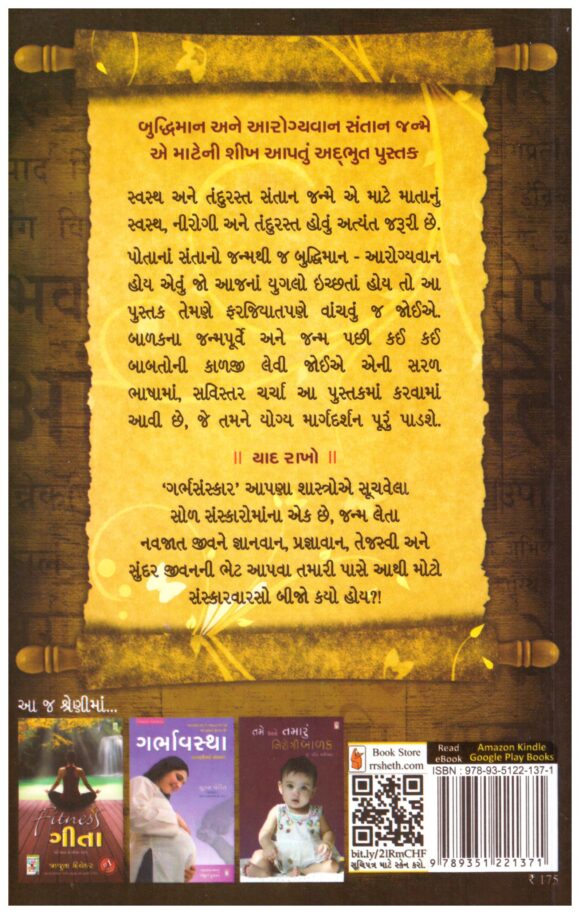 બુદ્ધિમાન અને આરોગ્યવાન સંતાન જન્મે
એ માટેની શીખ આપતું અદ્ભુત પુસ્તક
સ્વસ્થ અને તંદુરસ્ત સંતાન જન્મે એ માટે માતાનું
સ્વસ્થ, નીરોગી અને તંદુરસ્ત હોવું અત્યંત જરૂરી છે.
પોતાનાં સંતાનો જન્મથી જ બુદ્ધિમાન - આરોગ્યવાન
હોય એવું જો આજનાં યુગલો ઇચ્છતાં હોય તો આ
પુસ્તક તેમણે ફરજિયાતપણે વાંચવું જ જોઈએ.
બાળકના જન્મપૂર્વે અને જન્મ પછી કઈ કઈ
બાબતોની કાળજી લેવી જોઈએ એની સરળ
ભાષામાં, સવિસ્તર ચર્ચા આ પુસ્તકમાં કરવામાં
આવી છે, જે તમને યોગ્ય માર્ગદર્શન પૂરું પાડશે.
|| યાદ રાખો ||
'ગર્ભસંસ્કાર' આપણા શાસ્ત્રોએ સૂચવેલા
સોળ સંસ્કારોમાંના એક છે, જન્મ લેતા
નવજાત જીવને જ્ઞાનવાન, પ્રજ્ઞાવાન, તેજસ્વી અને
સુંદર જીવનની ભેટ આપવા તમારી પાસે આથી મોટો
સંસ્કારવારસો બીજો કયો હોય?!
આ જ શ્રેણીમાં...
Fitness
ગીતા
ગર્ભાવસ્થા
તમે અને તમારું
નિરોગી બાળક
Book Store
rrsheth.com
Read
eBook
Amazon Kindle
Google Play Books
ISBN : 978-93-5122-137-1
bit.ly/2lRmCHF
સૂચિપત્ર માટે સ્કેન કરો.
9 789351 221371
₹ 175